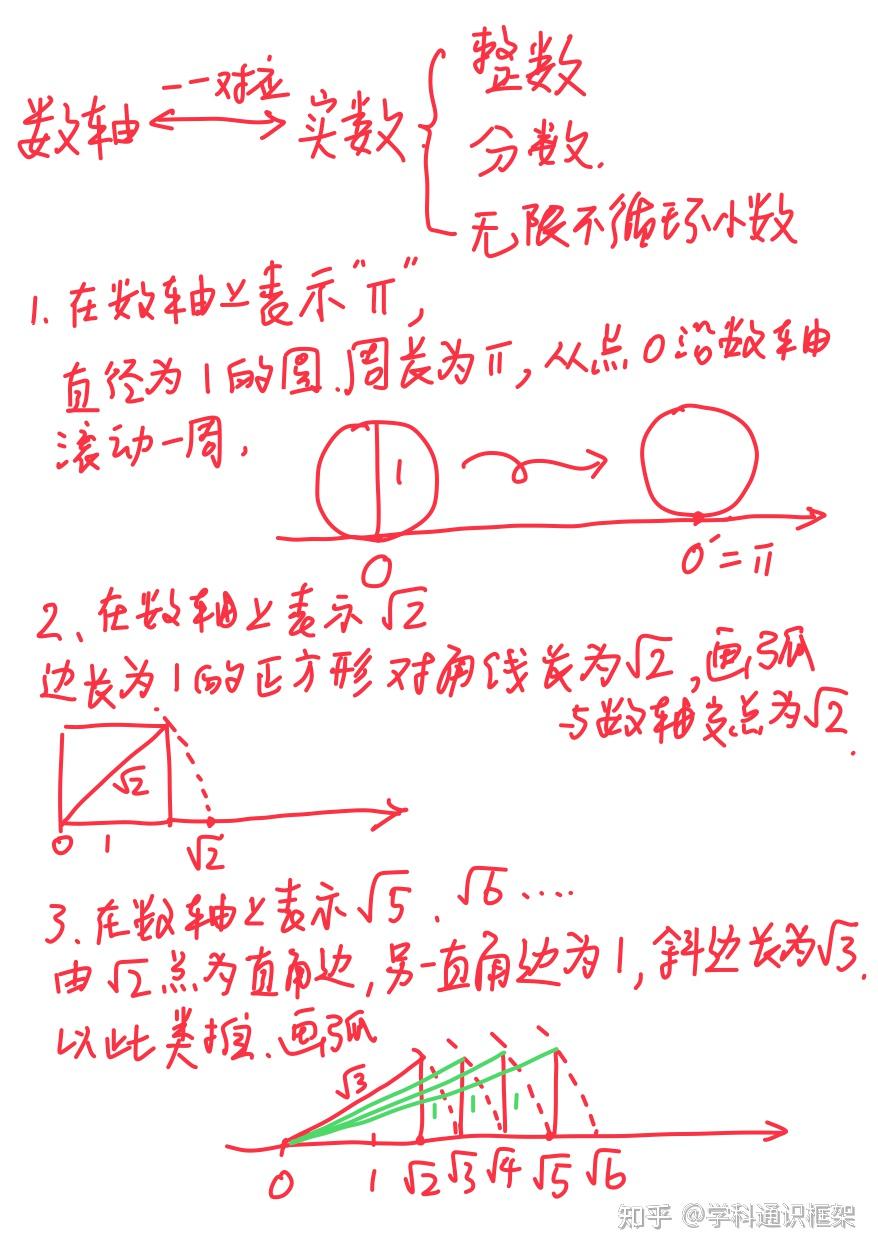 一一对应
数轴 ⟷ 实数 { 整数
分数.
无限不循环小数
1. 在数轴上表示"π",
直径为1的圆.周长为π,从点0沿数轴
滚动一周.
1
0
0′=π
2、在数轴上表示√2
边长为1的正方形对角线长为√2,画弧
与数轴交点为√2.
√2
0 1 √2
3.在数轴上表示√5、√6....
由√2点为直角边,另一直角边为1,斜边长为√3.
以此类推.画弧
√3
1 1 1
0 1 √2 √3 √4 √5 √6
知乎 @学科通识框架